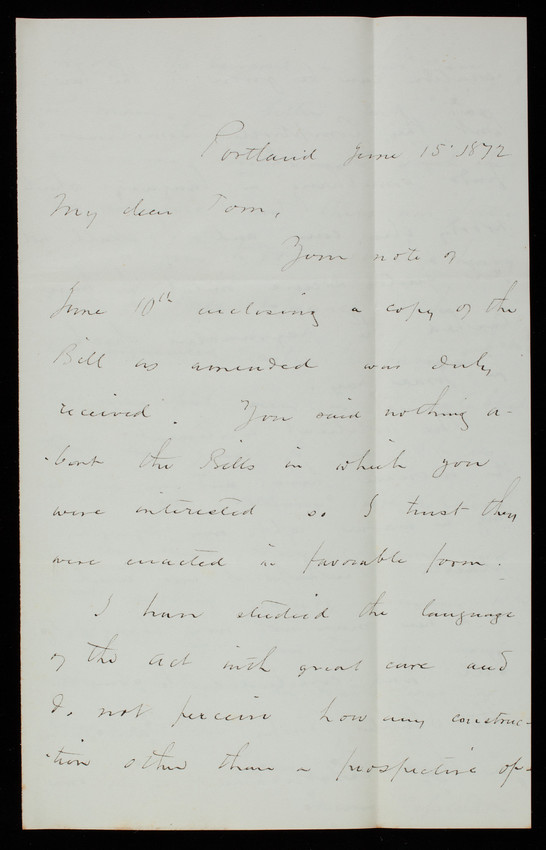 Portland June 15' 1872
My dear Tom,
Your note of
June 10th enclosing a copy of the
Bill as amended was duly
received. You said nothing a-
-bout the Bills in which you
were interested so I trust they
were enacted in favorable form.
I have studied the language
of the act with great care and
do not perceive how any construc-
-tion other than a prospective op-